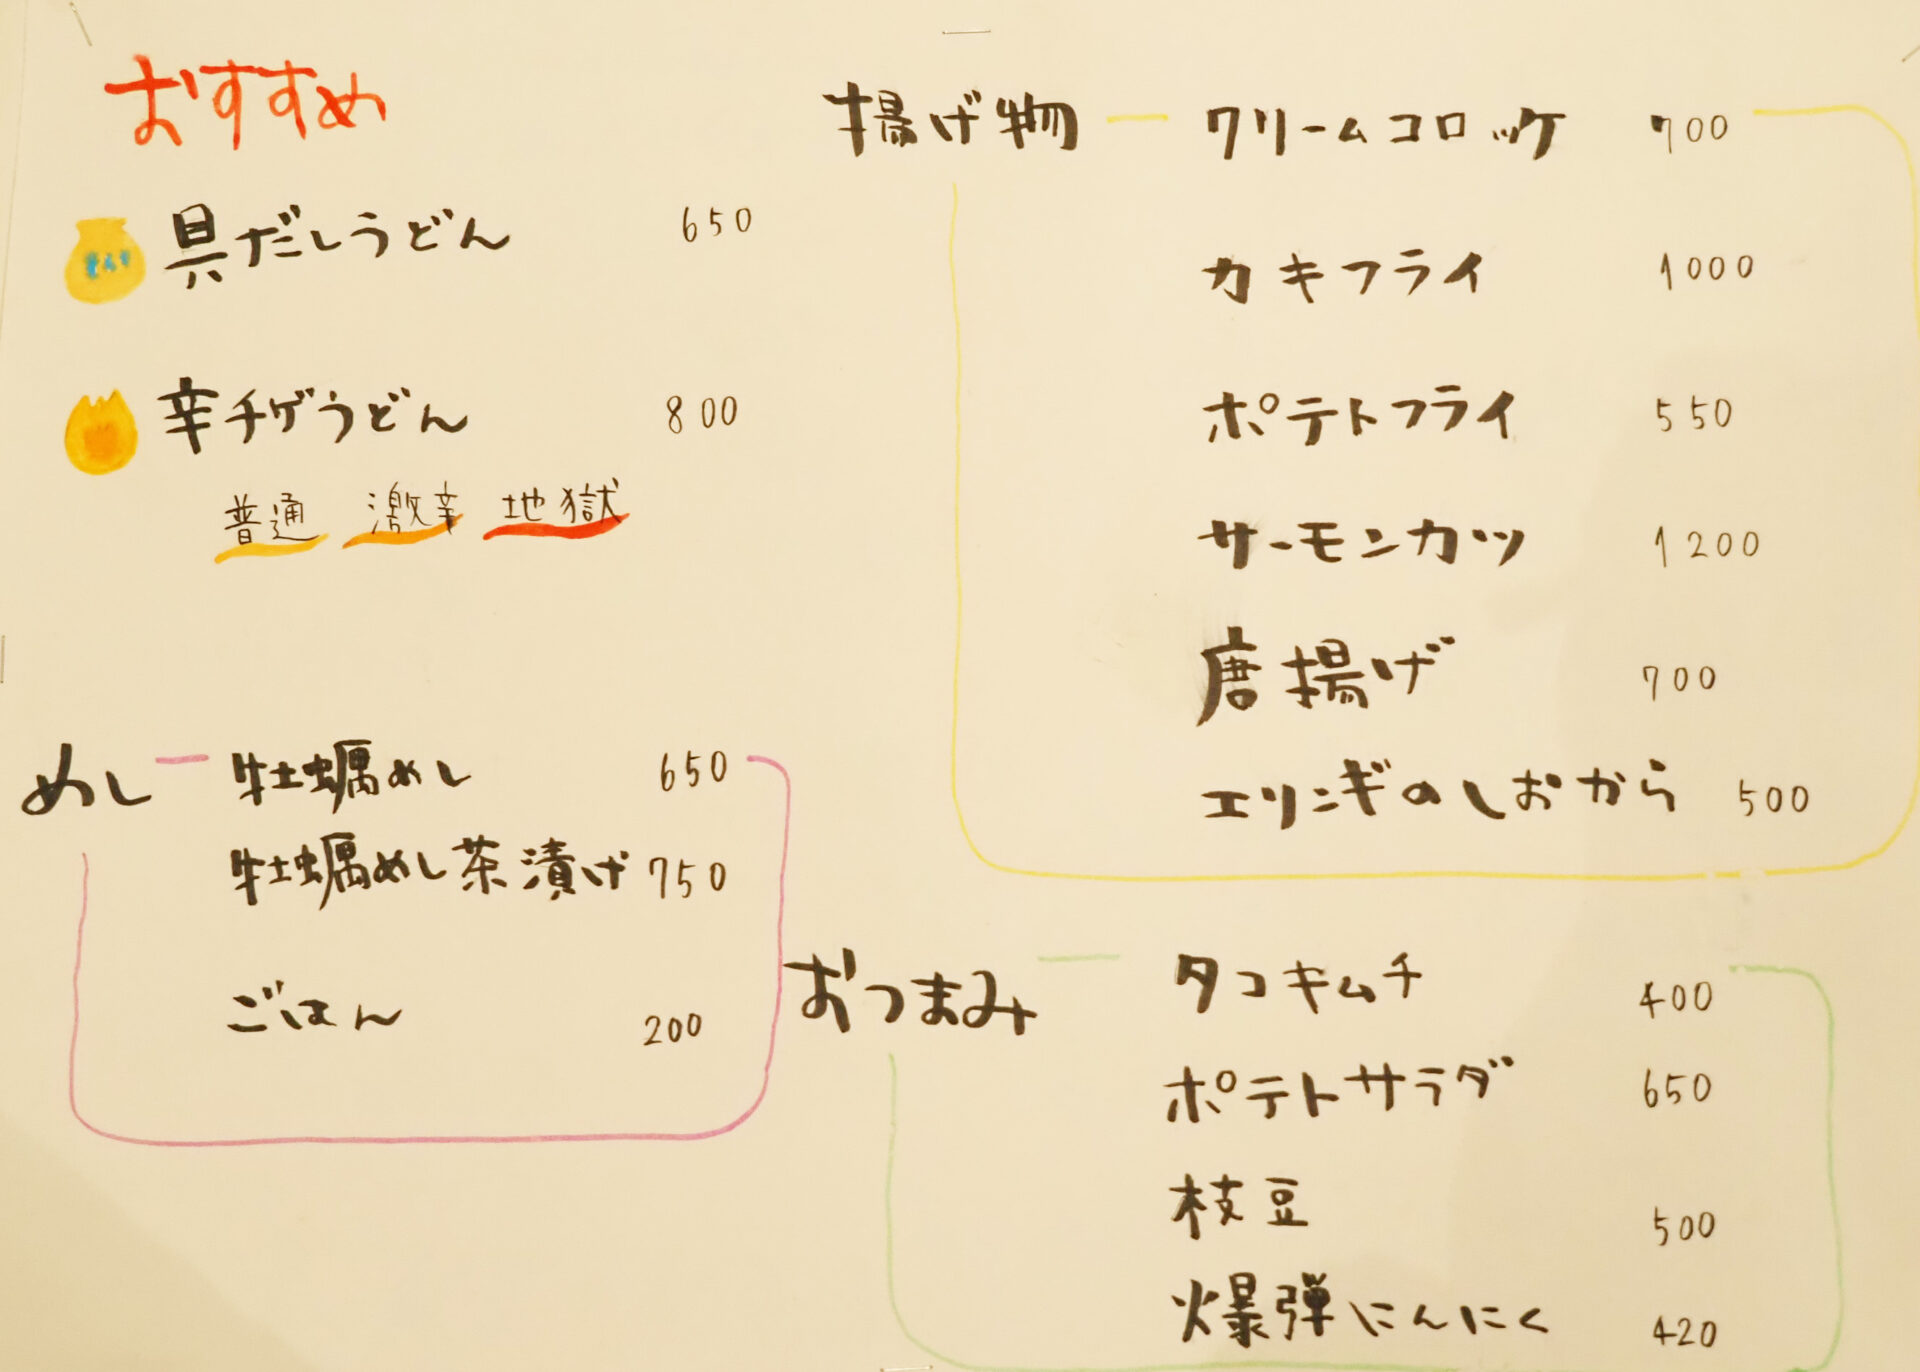 おすすめ
具だしうどん 650
辛チゲうどん 800
普通 激辛 地獄
めし 牡蠣めし 650
牡蠣めし茶漬け 750
ごはん 200
揚げ物 クリームコロッケ 700
カキフライ 1000
ポテトフライ 550
サーモンカツ 1200
唐揚げ 700
エリンギのしおから 500
おつまみ タコキムチ 400
ポテトサラダ 650
枝豆 500
爆弾にんにく 420